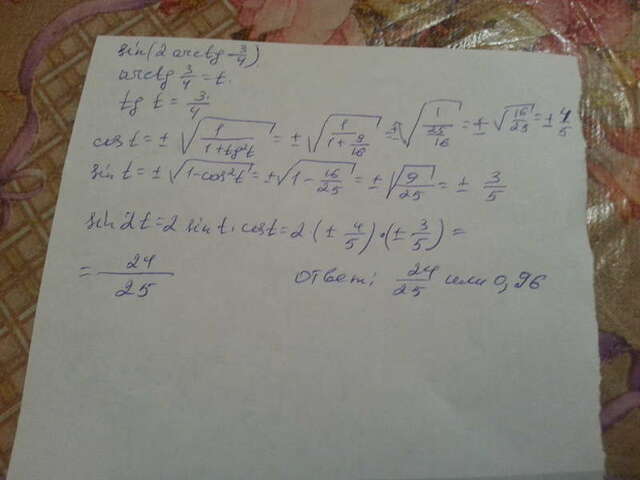 sin(2 arctg 3/4)
arctg 3/4 = t.
tg t = 3/4
cos t = ± √(1/(1+tg²t)) = ± √(1/(1+9/16)) = ± √(1/(25/16)) = ± √(16/25) = ± 4/5
sin t = ± √(1-cos²t) = ± √(1-16/25) = ± √(9/25) = ± 3/5
sin 2t = 2 sin t · cos t = 2 · (± 4/5) · (± 3/5) =
= 24/25 ответ: 24/25 или 0,96